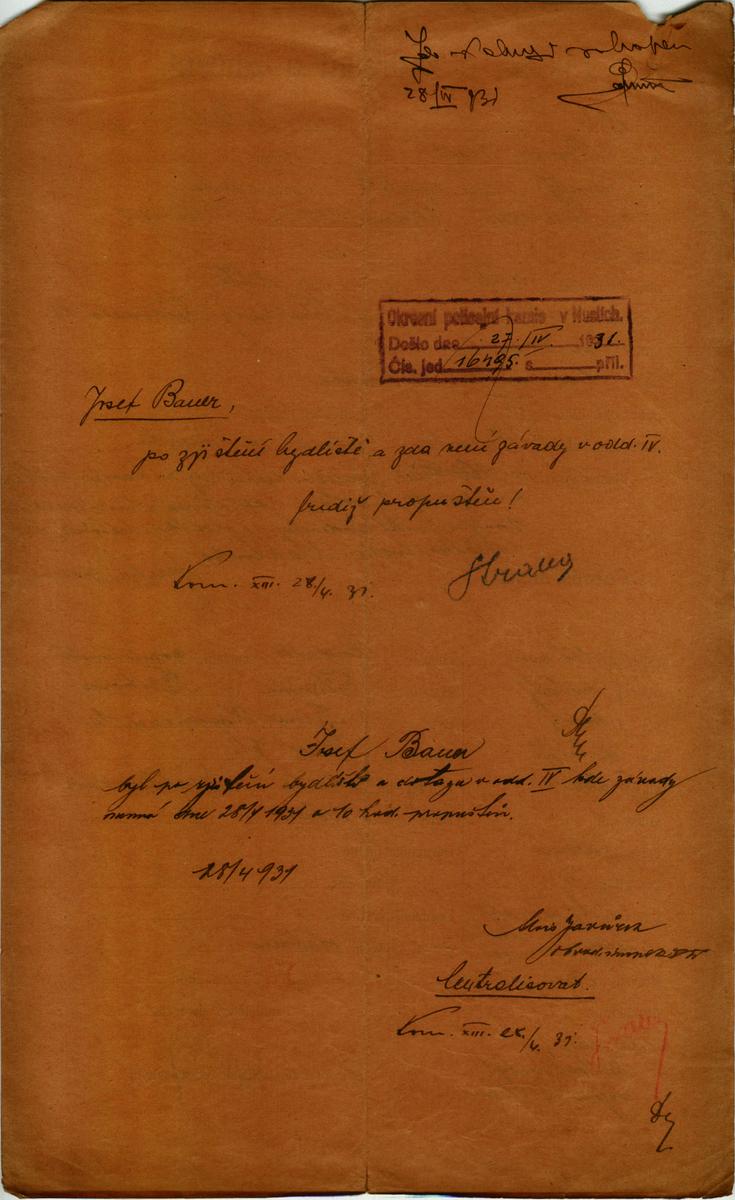 Je schopen
28/IV 931
Okresní policejní komis v Nuslích.
Došlo dne 27/IV. 1931.
Čís. jed. 16495. s příl.
Josef Bauer,
po zjištění bydliště a zda není závady v odd. IV.
budiž propuštěn!
Kom. XIII. 28/4. 31.
Josef Bauer
byl po zjištění bydliště a dotazu v odd. IV kde závady
nemá dne 28/4 1931 o 10 hod. propuštěn.
28/4 931
Centralisovat.
Kom. XIII. 28/4. 31.